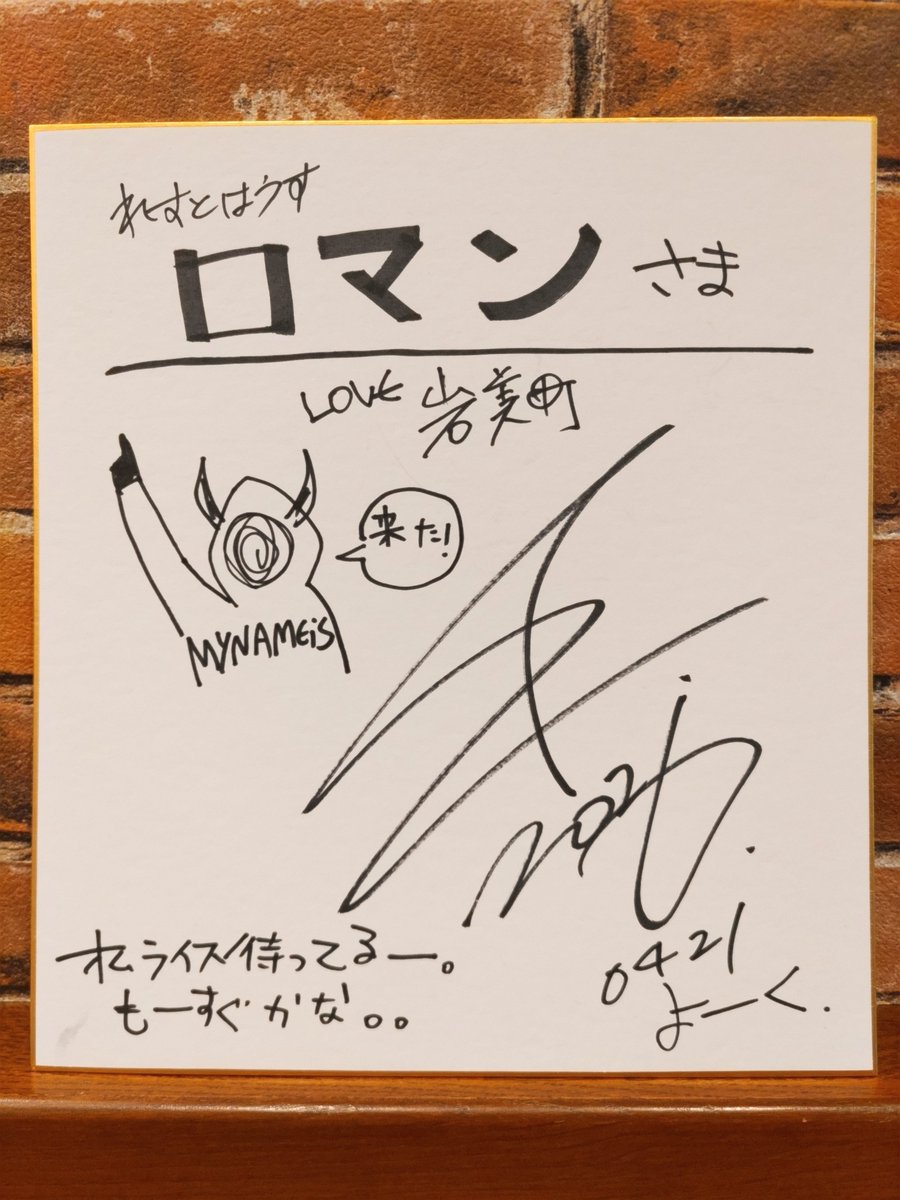 れすとはうす
ロマン さま
LOVE 岩美町
来た!
MYNAMEiS
オムライス待ってるー。
もーすぐかな。。
0421
よーく.